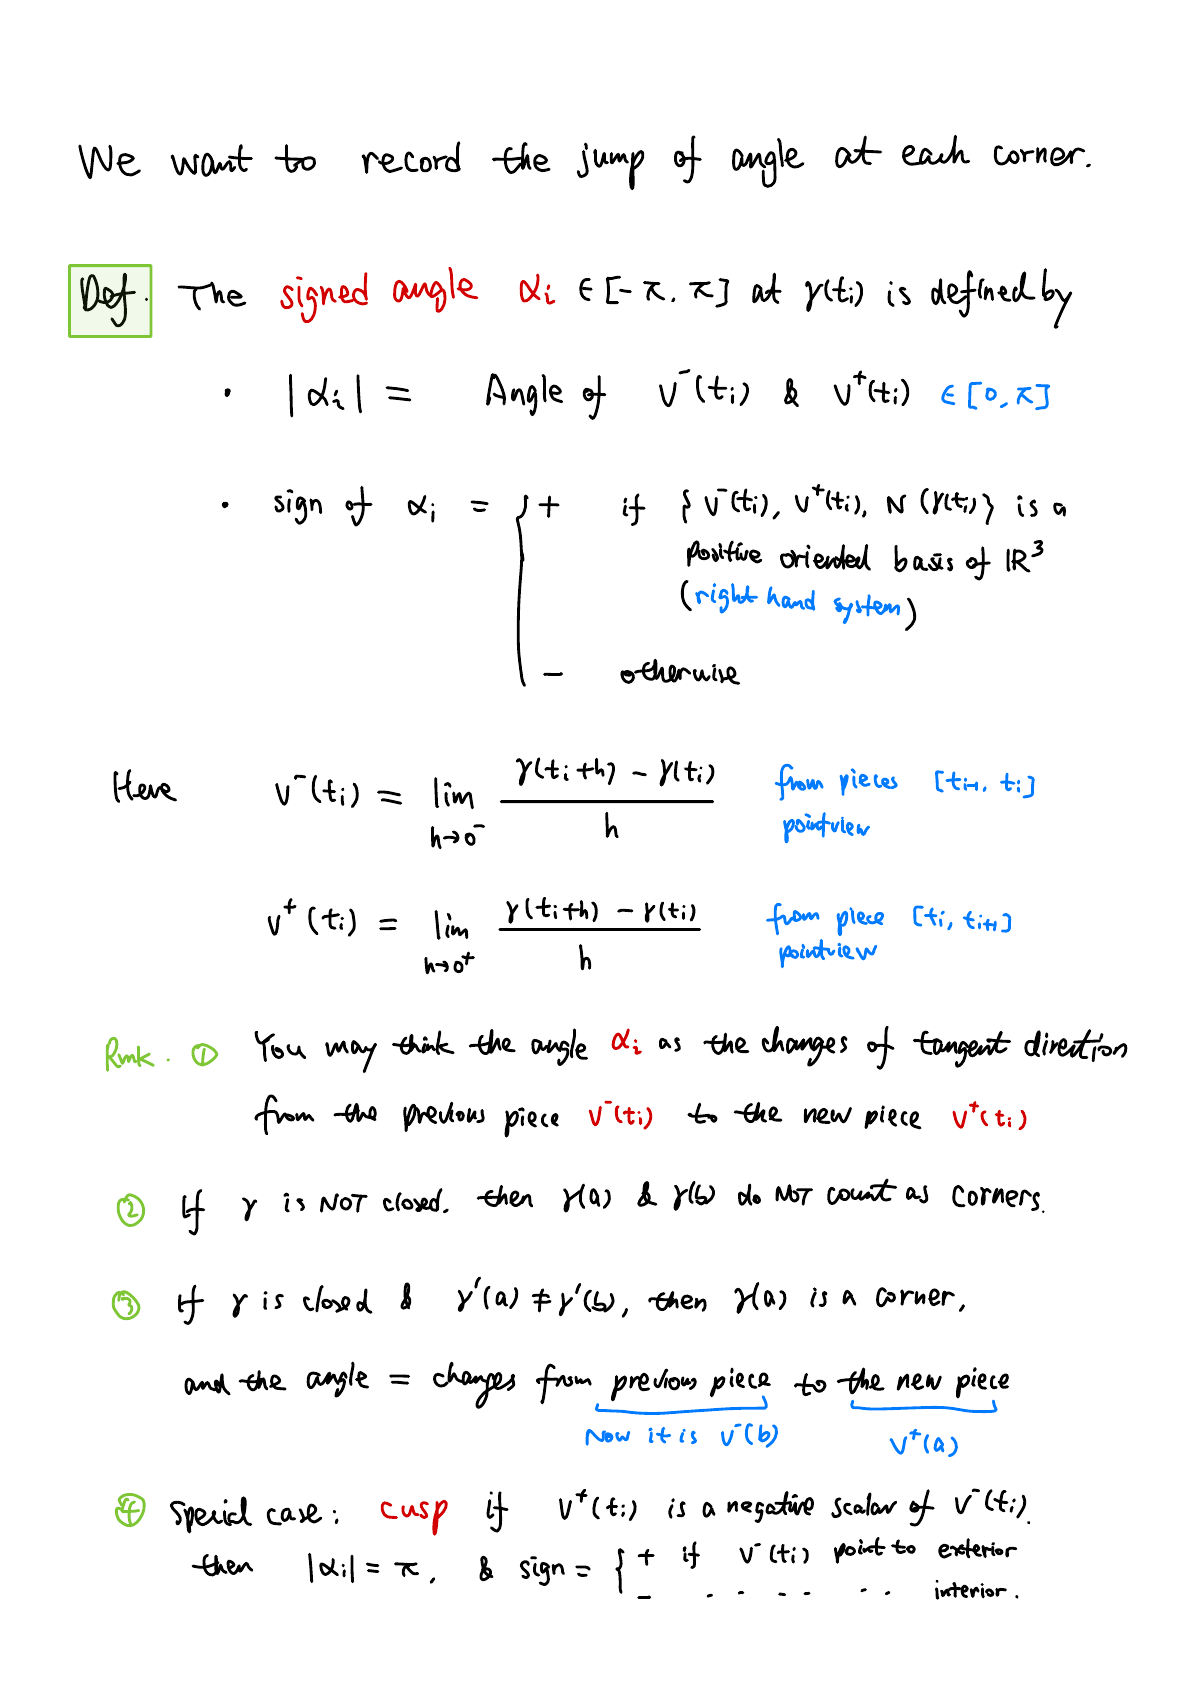 We want to record the jump of angle at each corner.
Def. The signed angle αi ∈ [-π, π] at γ(ti) is defined by
· |αi| = Angle of V⁻(ti) & V⁺(ti) ∈ [0, π]
· sign of αi = { + if { V⁻(ti), V⁺(ti), N(γ(ti)} is a
positive oriented basis of IR³
(right hand system)
− otherwise
Here V⁻(ti) = lim h→0⁻ (γ(ti+h) − γ(ti)) / h from pieces [ti-1, ti]
pointview
V⁺(ti) = lim h→0⁺ (γ(ti+h) − γ(ti)) / h from piece [ti, ti+1]
pointview
Rmk. ① You may think the angle αi as the changes of tangent direction
from the previous piece V⁻(ti) to the new piece V⁺(ti)
② If γ is NOT closed. then γ(a) & γ(b) do NOT count as corners.
③ If γ is closed & γ'(a) ≠ γ'(b), then γ(a) is a corner,
and the angle = changes from previous piece to the new piece
Now it is V⁻(b) V⁺(a)
④ Special case: cusp if V⁺(ti) is a negative scalar of V⁻(ti).
then |αi| = π, & sign = { + if V⁻(ti) point to exterior
− · · · · · · interior.